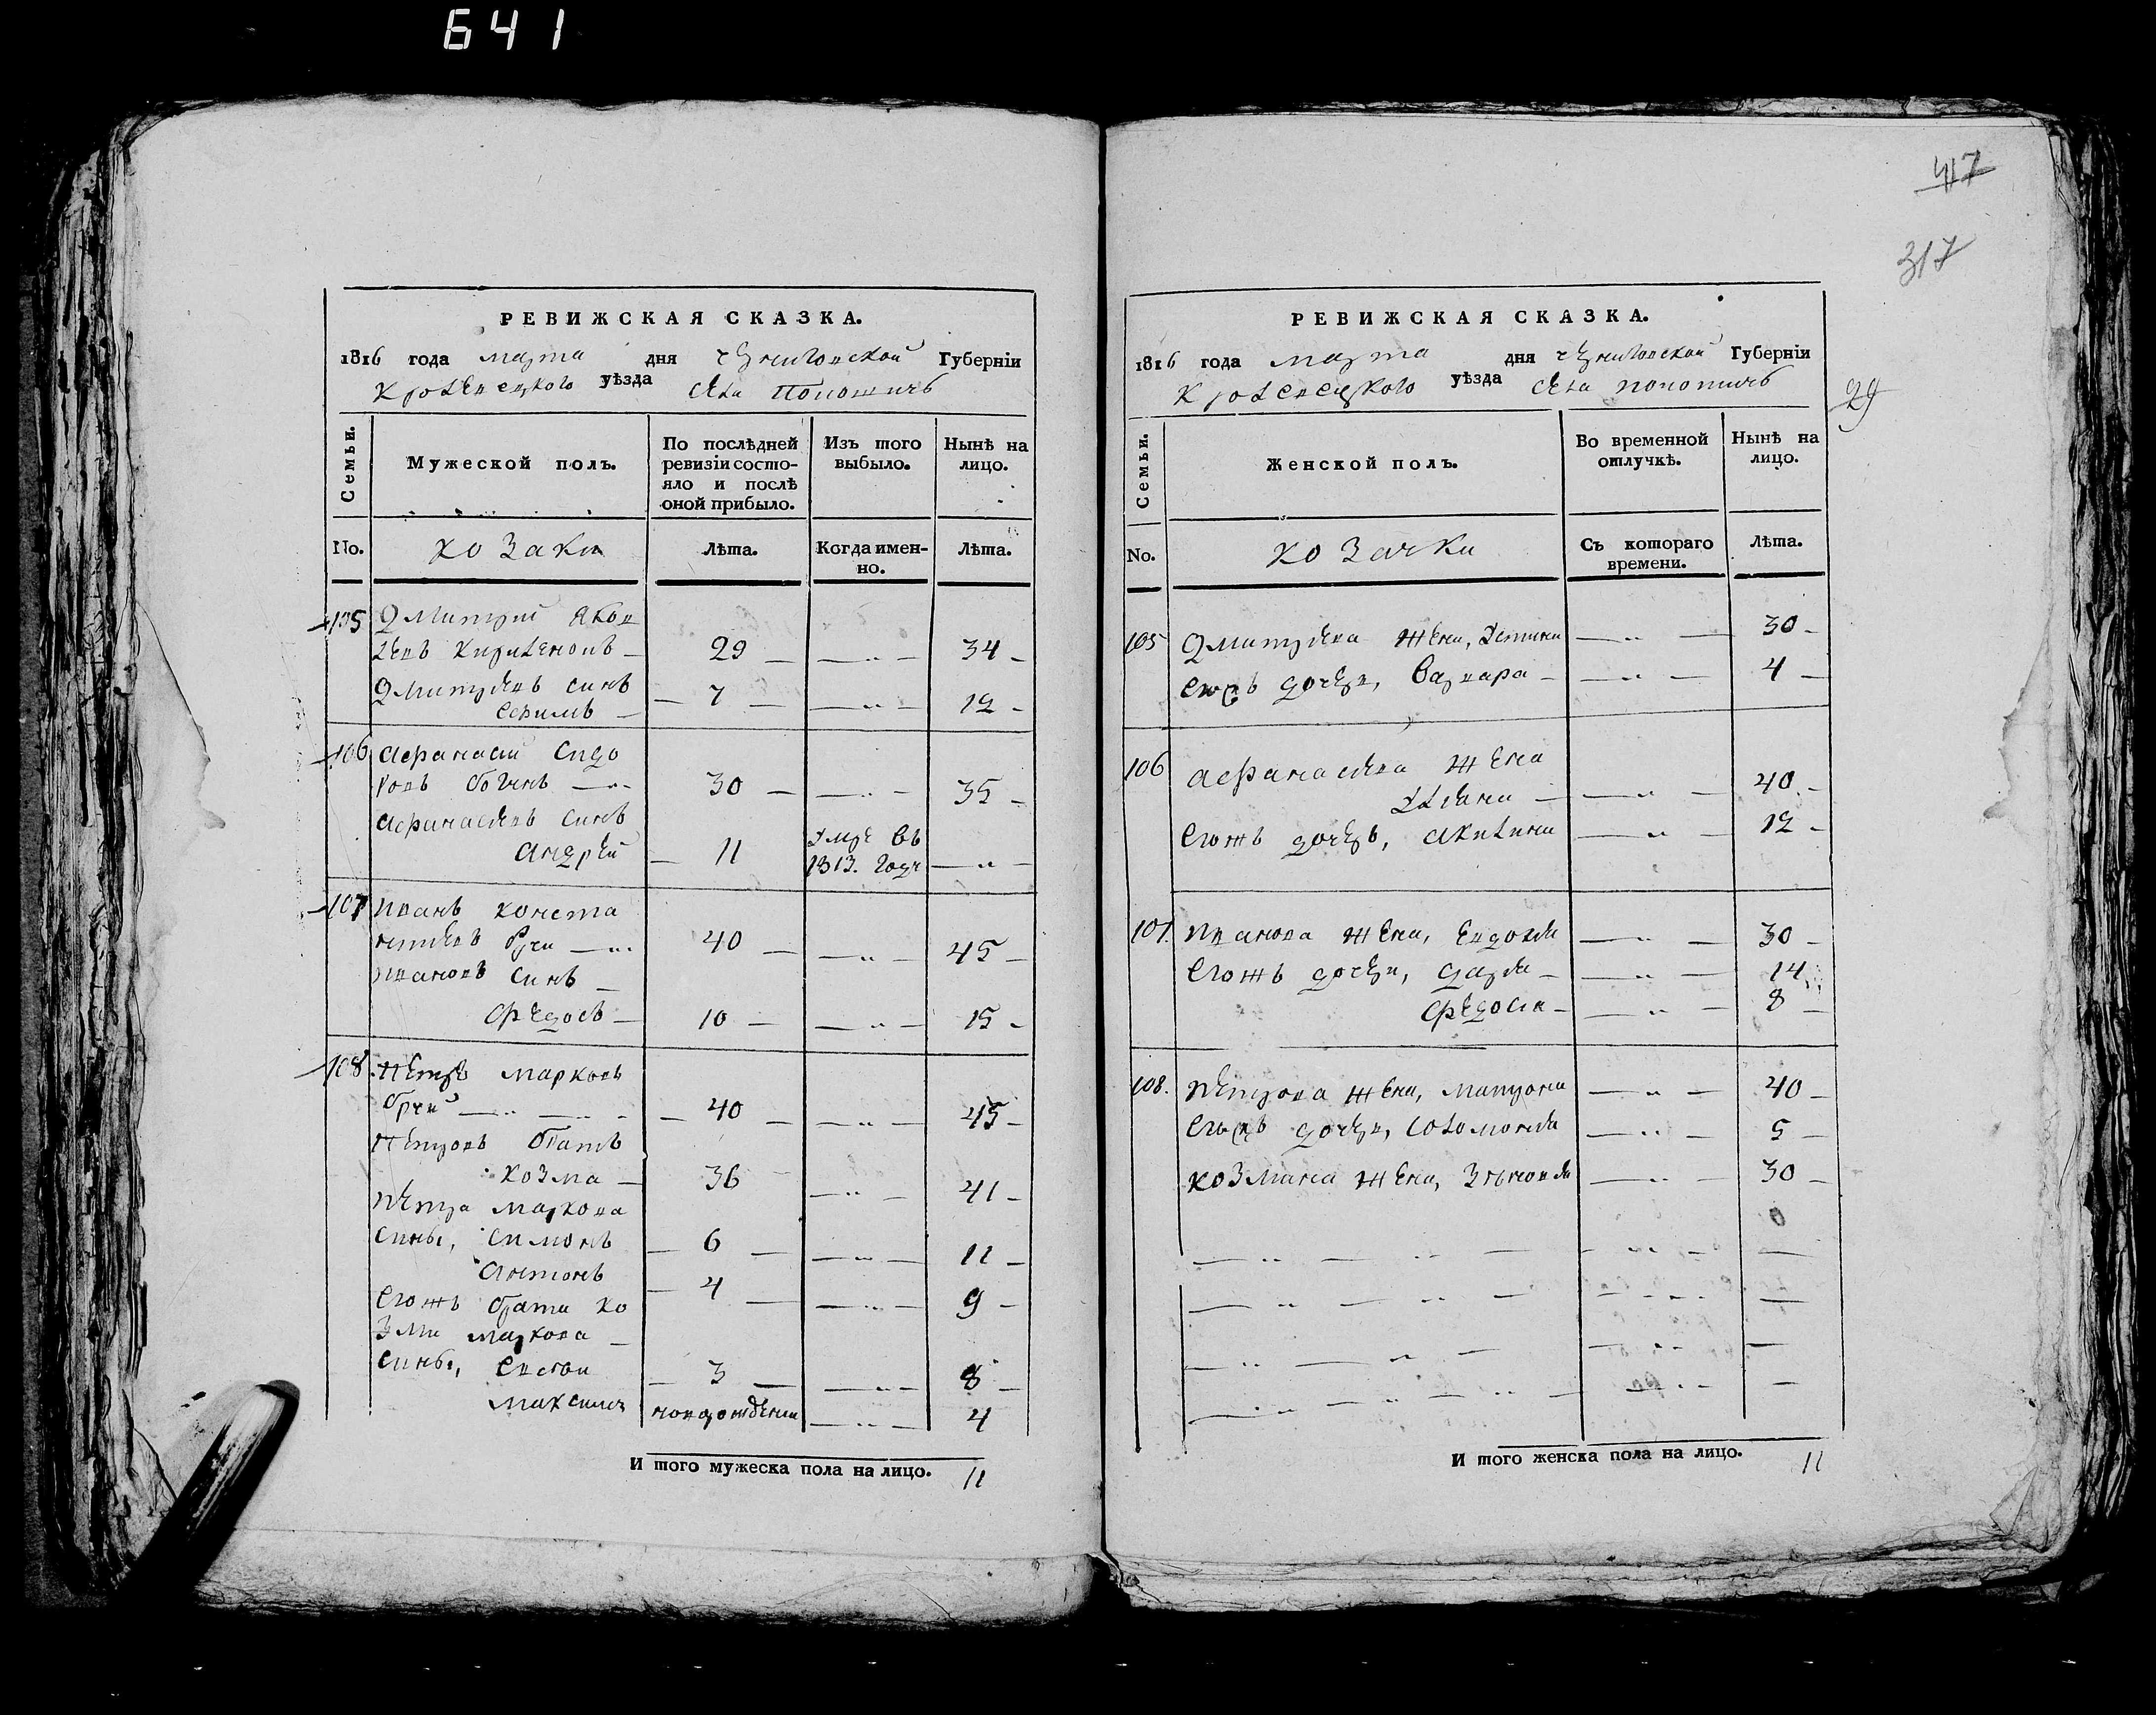 641
417
317
29
РЕВИЖСКАЯ СКАЗКА.
1816 года марта дня Черниговской Губерніи
Кролевецкого уѣзда села Понотичъ
Семьи.
Мужеской полъ.
По послѣдней ревизіи состо-
яло и послѣ
оной прибыло.
Изъ того
выбыло.
Нынѣ на
лицо.
No.
козаки
Лѣта.
Когда имен-
но.
Лѣта.
105 Дмитрий Яков
левъ 29 — — „ — 34 —
Дмитріевъ синъ
Ефимъ — 7 — — „ — 12 —
106 Афанасий Сидо
ровъ 30 — — „ — 35 —
Афанасіевъ синъ
Андрей — 11 умре въ
1813. году — „ —
107 Иванъ Конста
нтіевъ 40 — — „ — 45 —
Ивановъ синъ —
Федосъ — 10 — — „ — 15 —
108. Петръ Марковъ
— 40 — — „ — 45 —
Петровъ братъ
Козма — 36 — — „ — 41 —
Петра Маркова
сины, Симонъ — 6 — — „ — 11 —
Антонъ — 4 — — „ — 9 —
Егожъ брата Ко
зми Маркова —
сины, — 3 — — „ — 8 —
Максимъ новорожденни — „ — 4
И того мужеска пола на лицо. 11
РЕВИЖСКАЯ СКАЗКА.
1816 года марта дня Черниговской Губерніи
Кролевецкого уѣзда села Понотичъ
Семьи.
Женской полъ.
Во временной
отлучкѣ.
Нынѣ на
лицо.
No.
козачки
Съ котораго
времени.
Лѣта.
105 Дмитріева жена, Устина — „ — 30 —
Егожъ дочерь, Варвара — — „ — 4 —
106 Афанасіева жена
Уляна — — „ — 40. —
Егожъ дочерь, Акилина — „ — 12 —
107. Иванова жена, Евдокія — „ — 30 —
Егожъ дочери, Дарія — — „ — 14
Федосія — — „ — 8 —
108. Петрова жена, Матрона — „ — 40 —
Егожъ дочерь, Соломонія — „ — 5 —
Козмина жена, Зѣновія — „ — 30 —
И того женска пола на лицо. 11